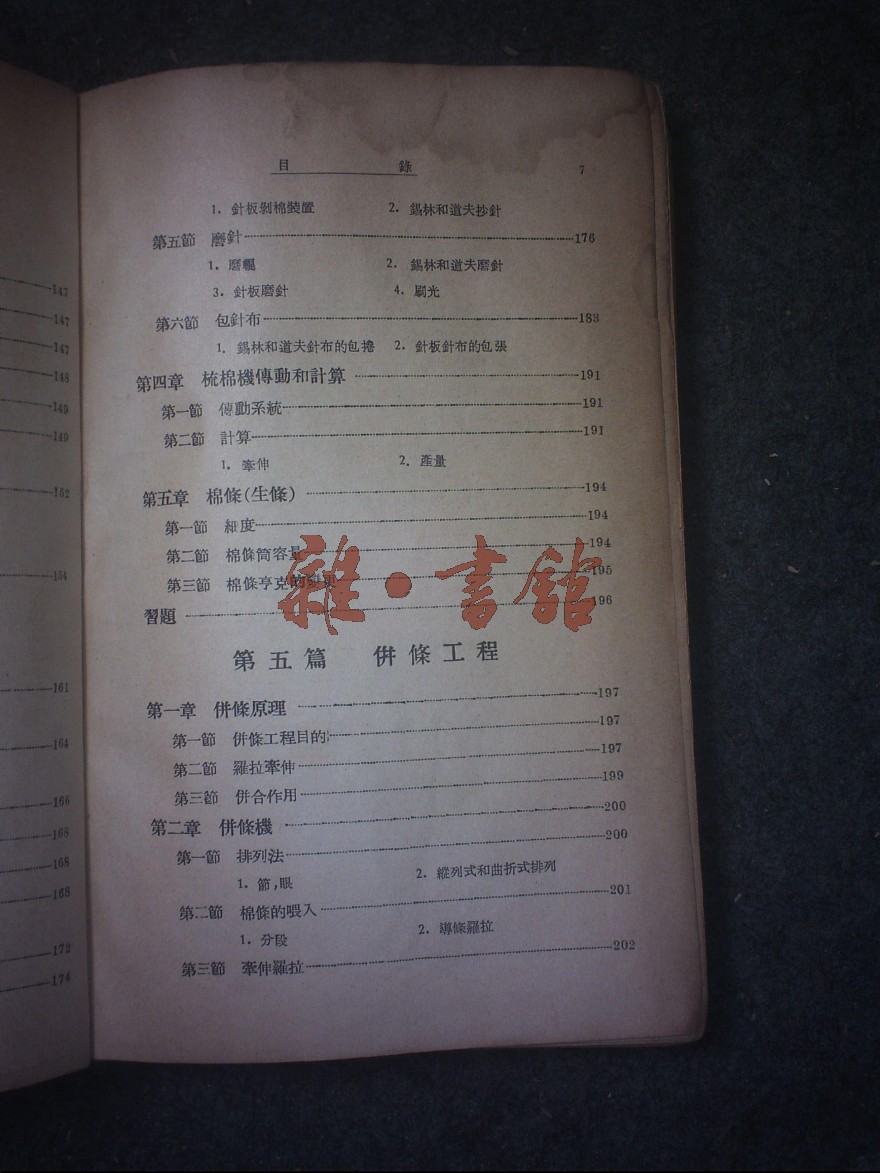 147
147
147
148
149
149
152
154
161
164
166
168
168
168
172
174
目 錄 7
1. 針板剝棉裝置 2. 錫林和道夫抄針
第五節 磨針 176
1. 磨輥 2. 錫林和道夫磨針
3. 針板磨針 4. 刷光
第六節 包針布 183
1. 錫林和道夫針布的包捲 2. 針板針布的包張
第四章 梳棉機傳動和計算 191
第一節 傳動系統 191
第二節 計算 191
1. 牽伸 2. 產量
第五章 棉條(生條) 194
第一節 細度 194
第二節 棉條筒容量 194
第三節 棉條亨克的變更 195
習題 196
雜·書館
第五篇 併條工程
第一章 併條原理 197
第一節 併條工程目的 197
第二節 羅拉牽伸 197
第三節 併合作用 199
第二章 併條機 200
第一節 排列法 200
1. 節,眼 2. 縱列式和曲折式排列
第二節 棉條的喂入 201
1. 分段 2. 導條羅拉
第三節 牽伸羅拉 202